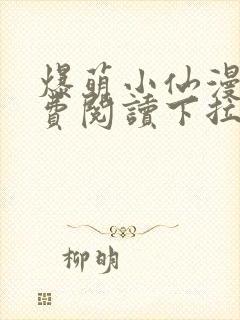 爆萌小仙漫
費閱讀下拉
柳明